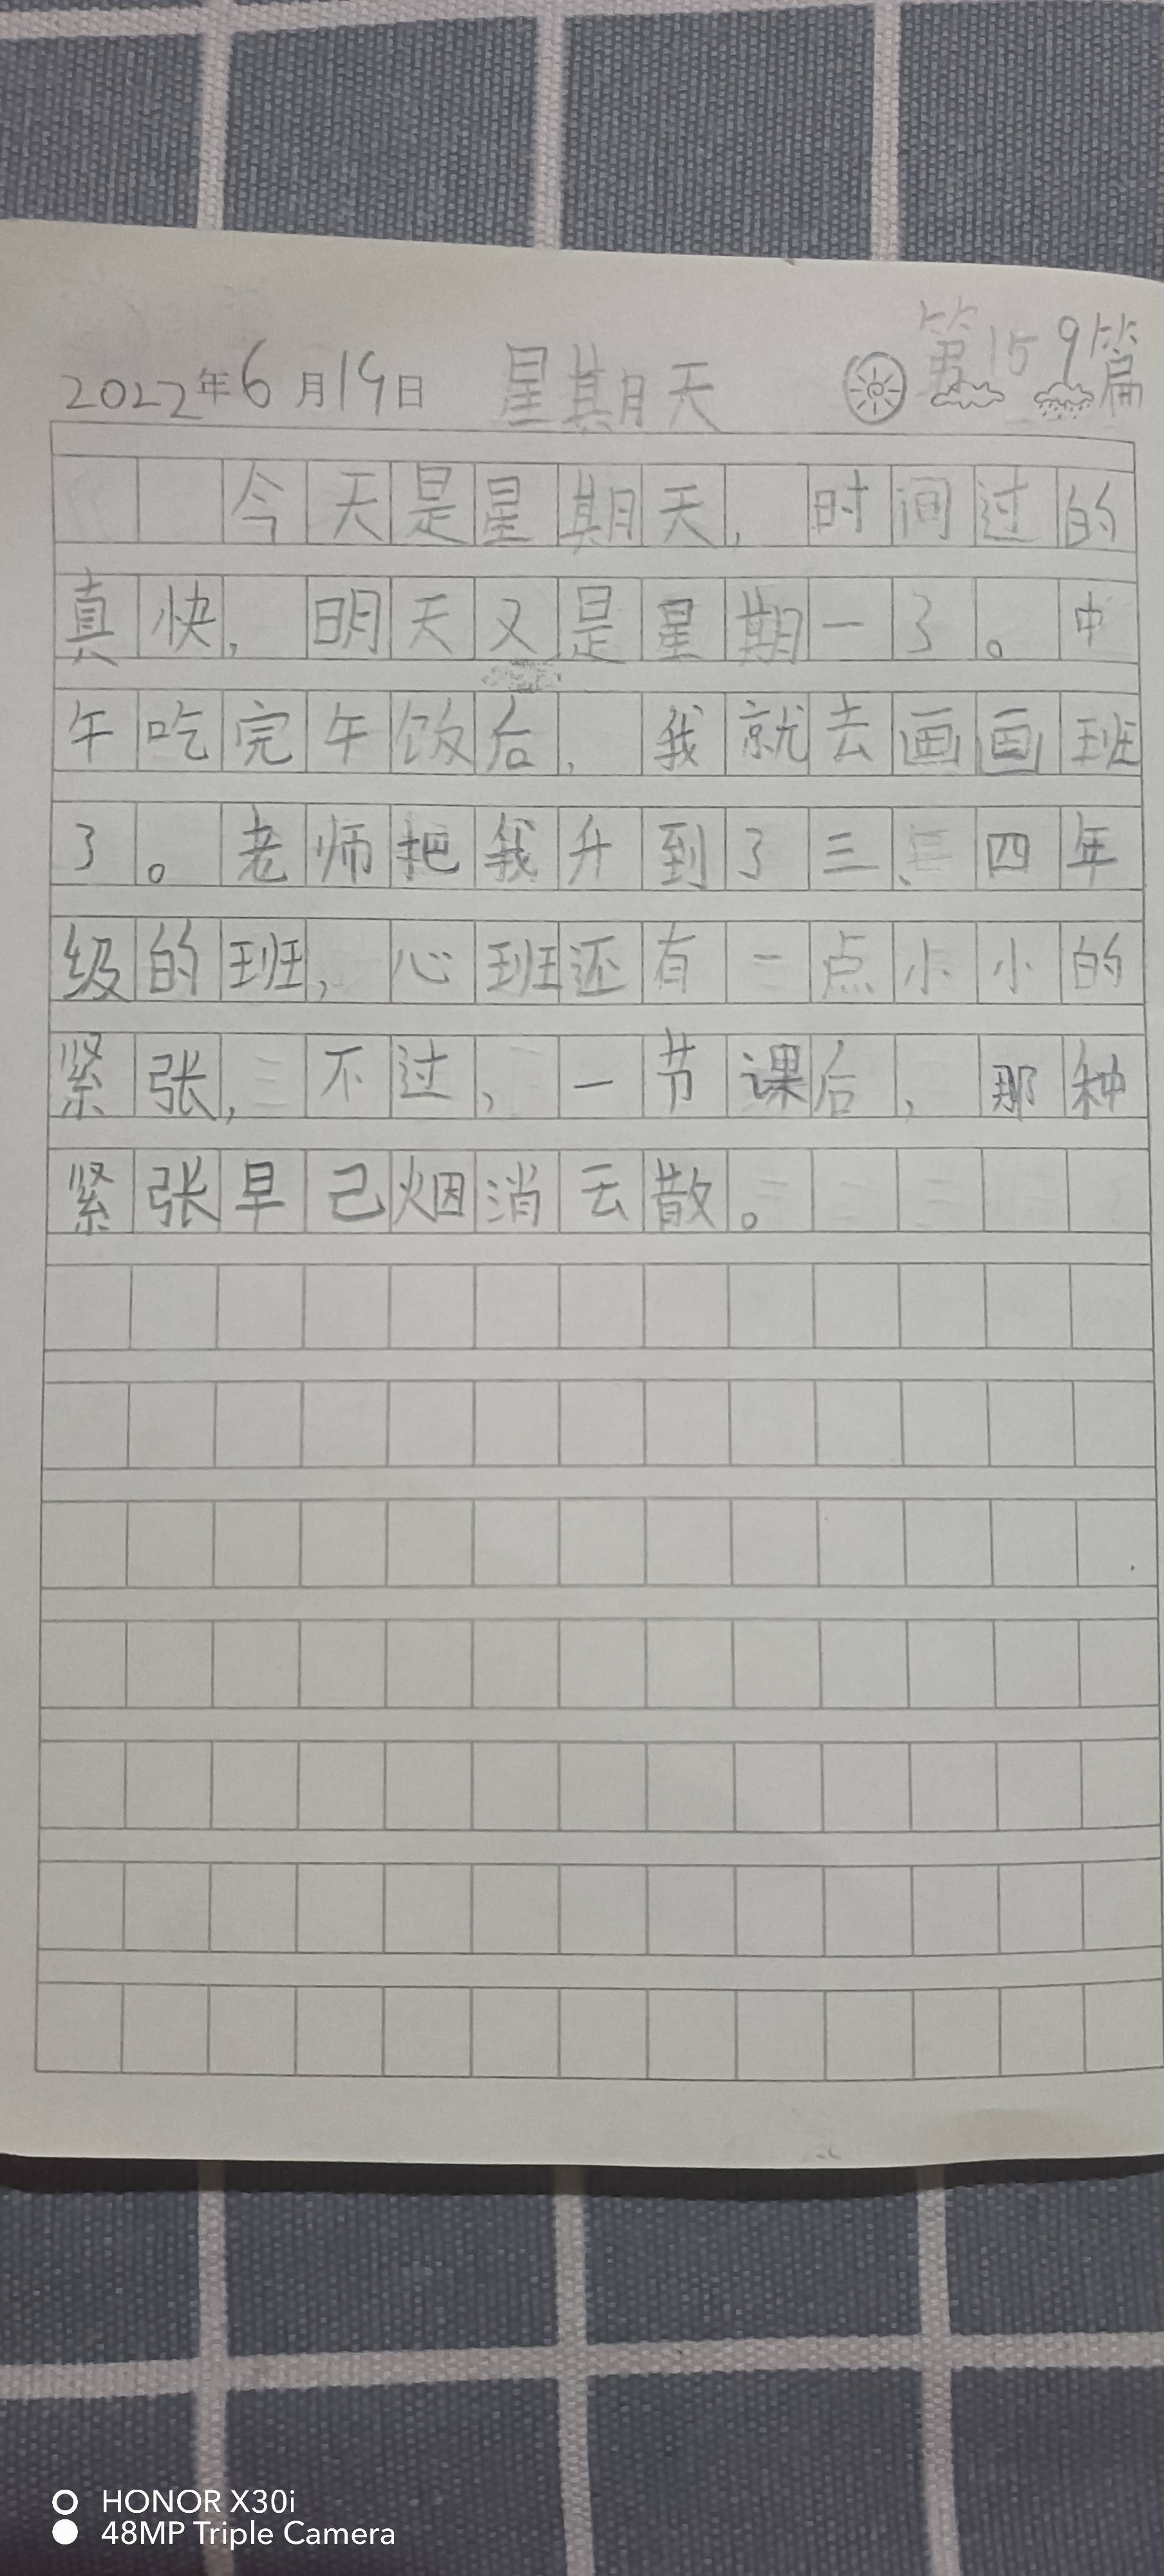 第159篇
2022年6月19日 星期天
今天是星期天,时间过的
真快,明天又是星期一了。中
午吃完午饭后,我就去画画班
了。老师把我升到了三、四年
级的班,心班还有一点小小的
紧张,不过,一节课后,那种
紧张早己烟消云散。
HONOR X30i
48MP Triple Camera